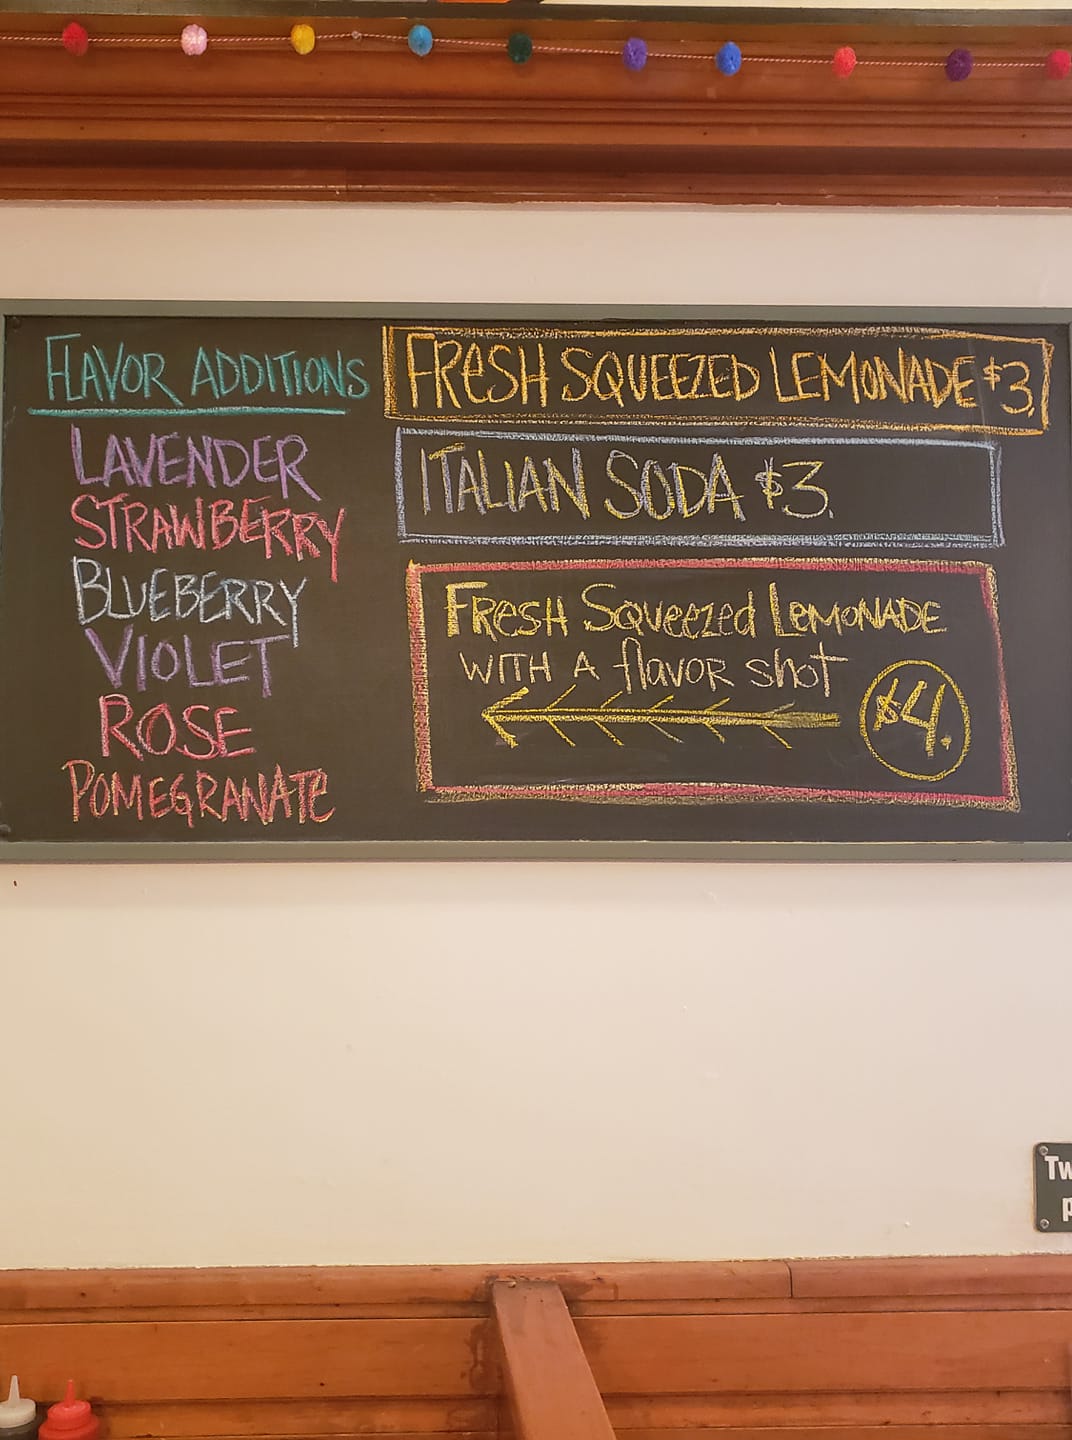 FLAVOR ADDITIONS
LAVENDER
STRAWBERRY
BLUEBERRY
VIOLET
ROSE
POMEGRANATE
FRESH SQUEEZED LEMONADE $3.
ITALIAN SODA $3.
FRESH SQUEEZED LEMONADE
WITH A flavor shot
$4.